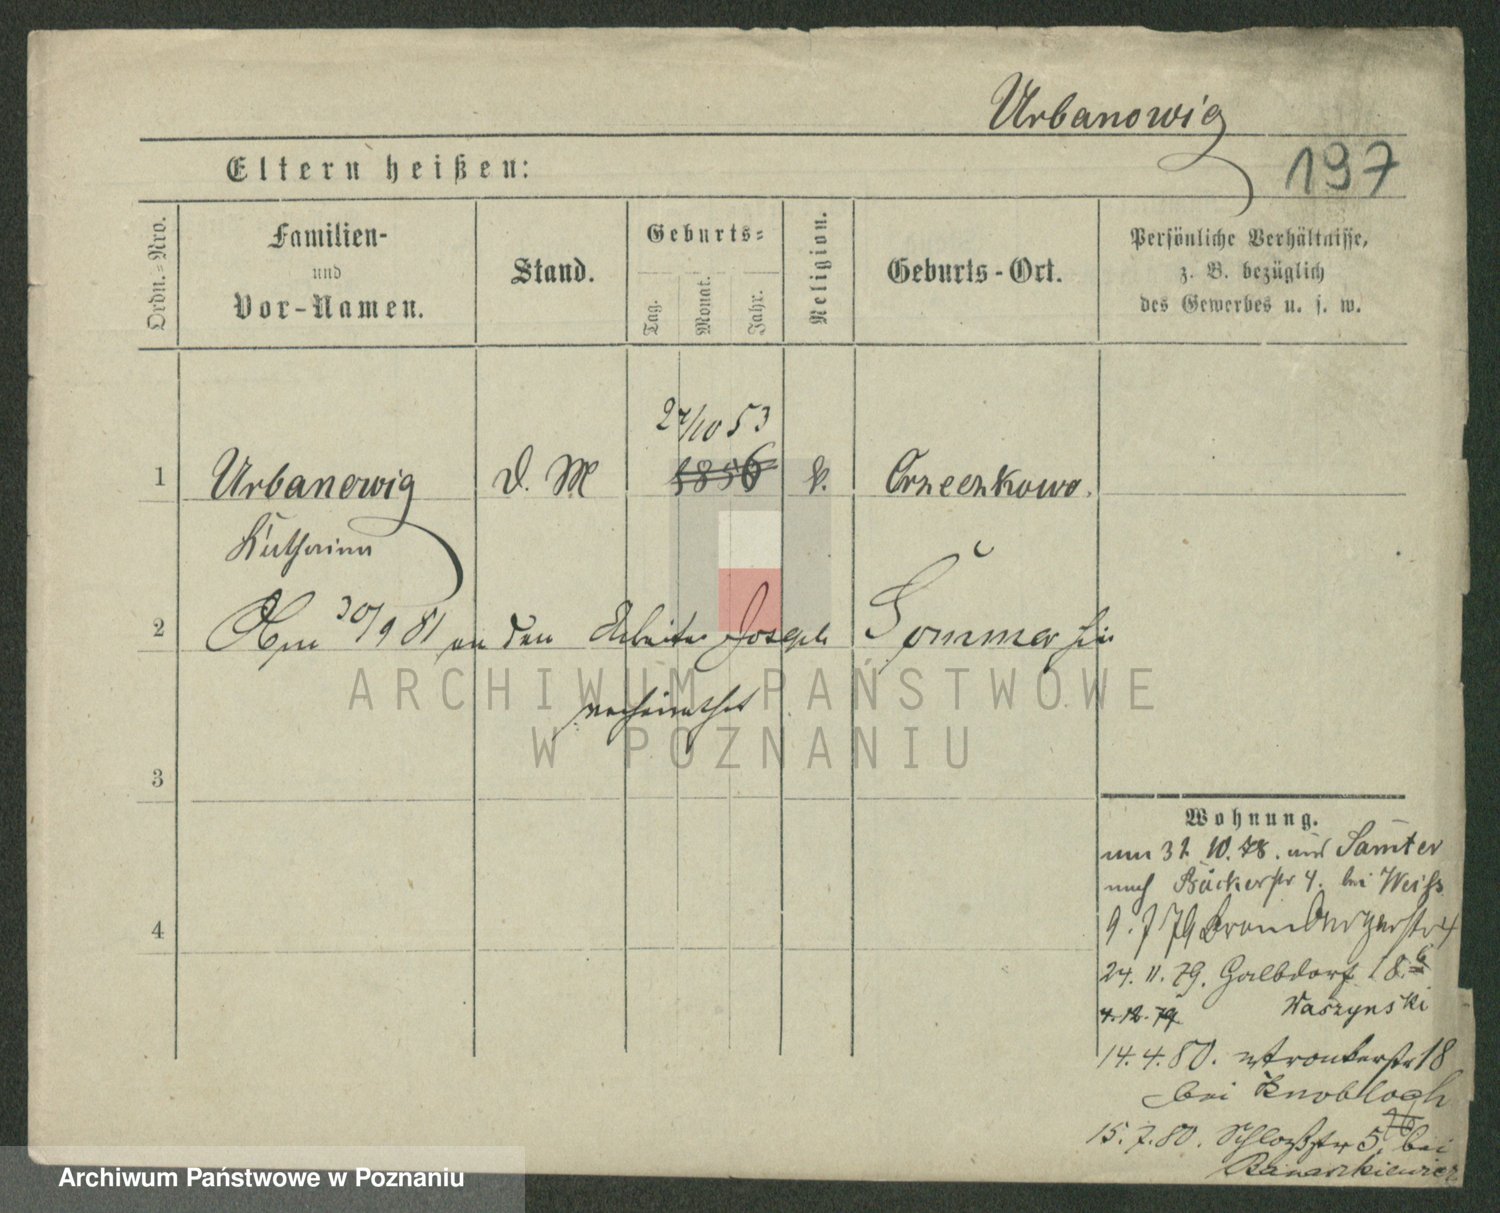 Urbanowig
197
Eltern heißen:
Ordn.=Nro.
Familien-
und
Vor-Namen.
Stand.
Geburts=
Tag.
Monat.
Jahr.
Religion.
Geburts-Ort.
Persönliche Verhältnisse,
z. B. bezüglich
des Gewerbes u. s. w.
27/10 53
1 Urbanowig D. M 1856 k. Orzeczkowo.
Katharina
2 30/9 81 an den Arbeiter Joseph Sommer hier
verheirathet
3
4
Wohnung.
31 10. 78. Samter
nach Bäckerstr 4. bei Weiss
9. 7 79 Brombergerstr 4
24. 11. 79. Halbdorf 18
4.12.79 Waszynski
14. 4. 80. Wronkerstr 18
bei Knoblogh
15. 7. 80. Schloßstr 5. bei
Banaszkiewicz
ARCHIWUM PAŃSTWOWE
W POZNANIU
Archiwum Państwowe w Poznaniu